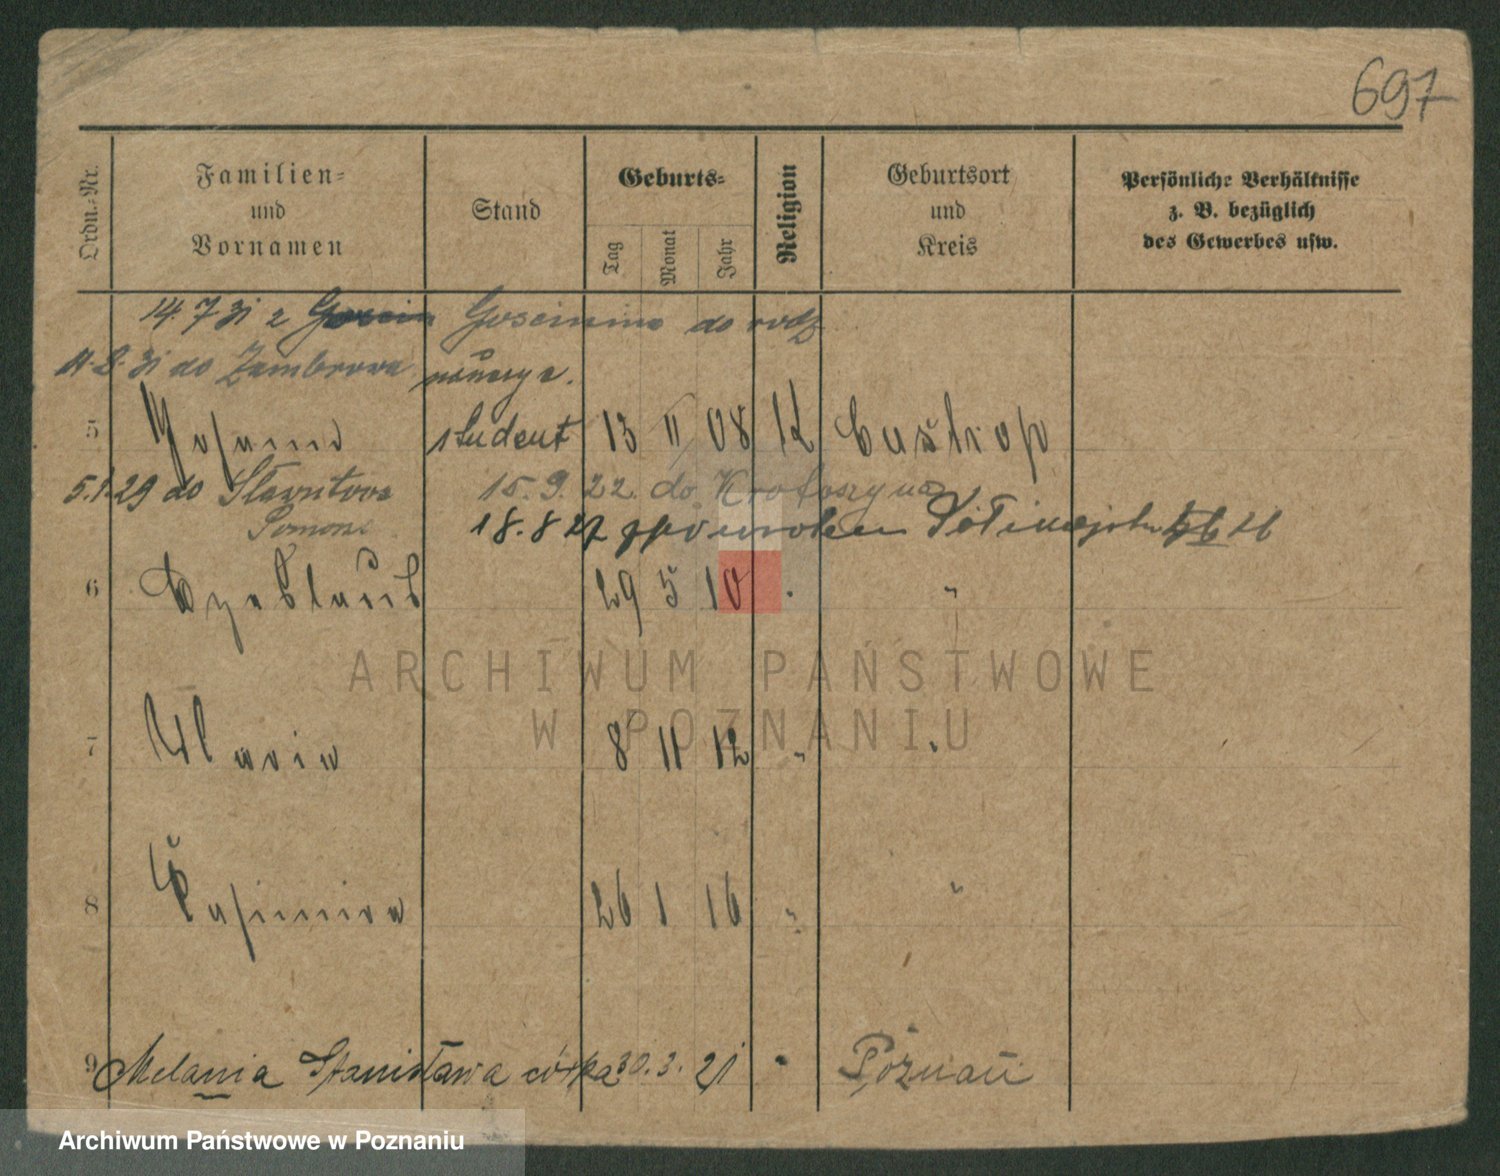 697
Ordn.-Nr.
Familien-
und
Vornamen
Stand
Geburts-
Tag
Monat
Jahr
Religion
Geburtsort
und
Kreis
Persönliche Verhältnisse
z. B. bezüglich
des Gewerbes usw.
14.7 31 z do rodz
do Zambrowa
5 student 13 II 08 K Castrop
5.1.29 do 15.9.22 do Krotoszyna
18.8
6 29 5 10 "
7 Maria 8 11 12 " "
8 Kasimira 26 1 16 " "
9 Melania Stanisława córka 30.3.21 " Poznań
ARCHIWUM PAŃSTWOWE
W POZNANIU
Archiwum Państwowe w Poznaniu